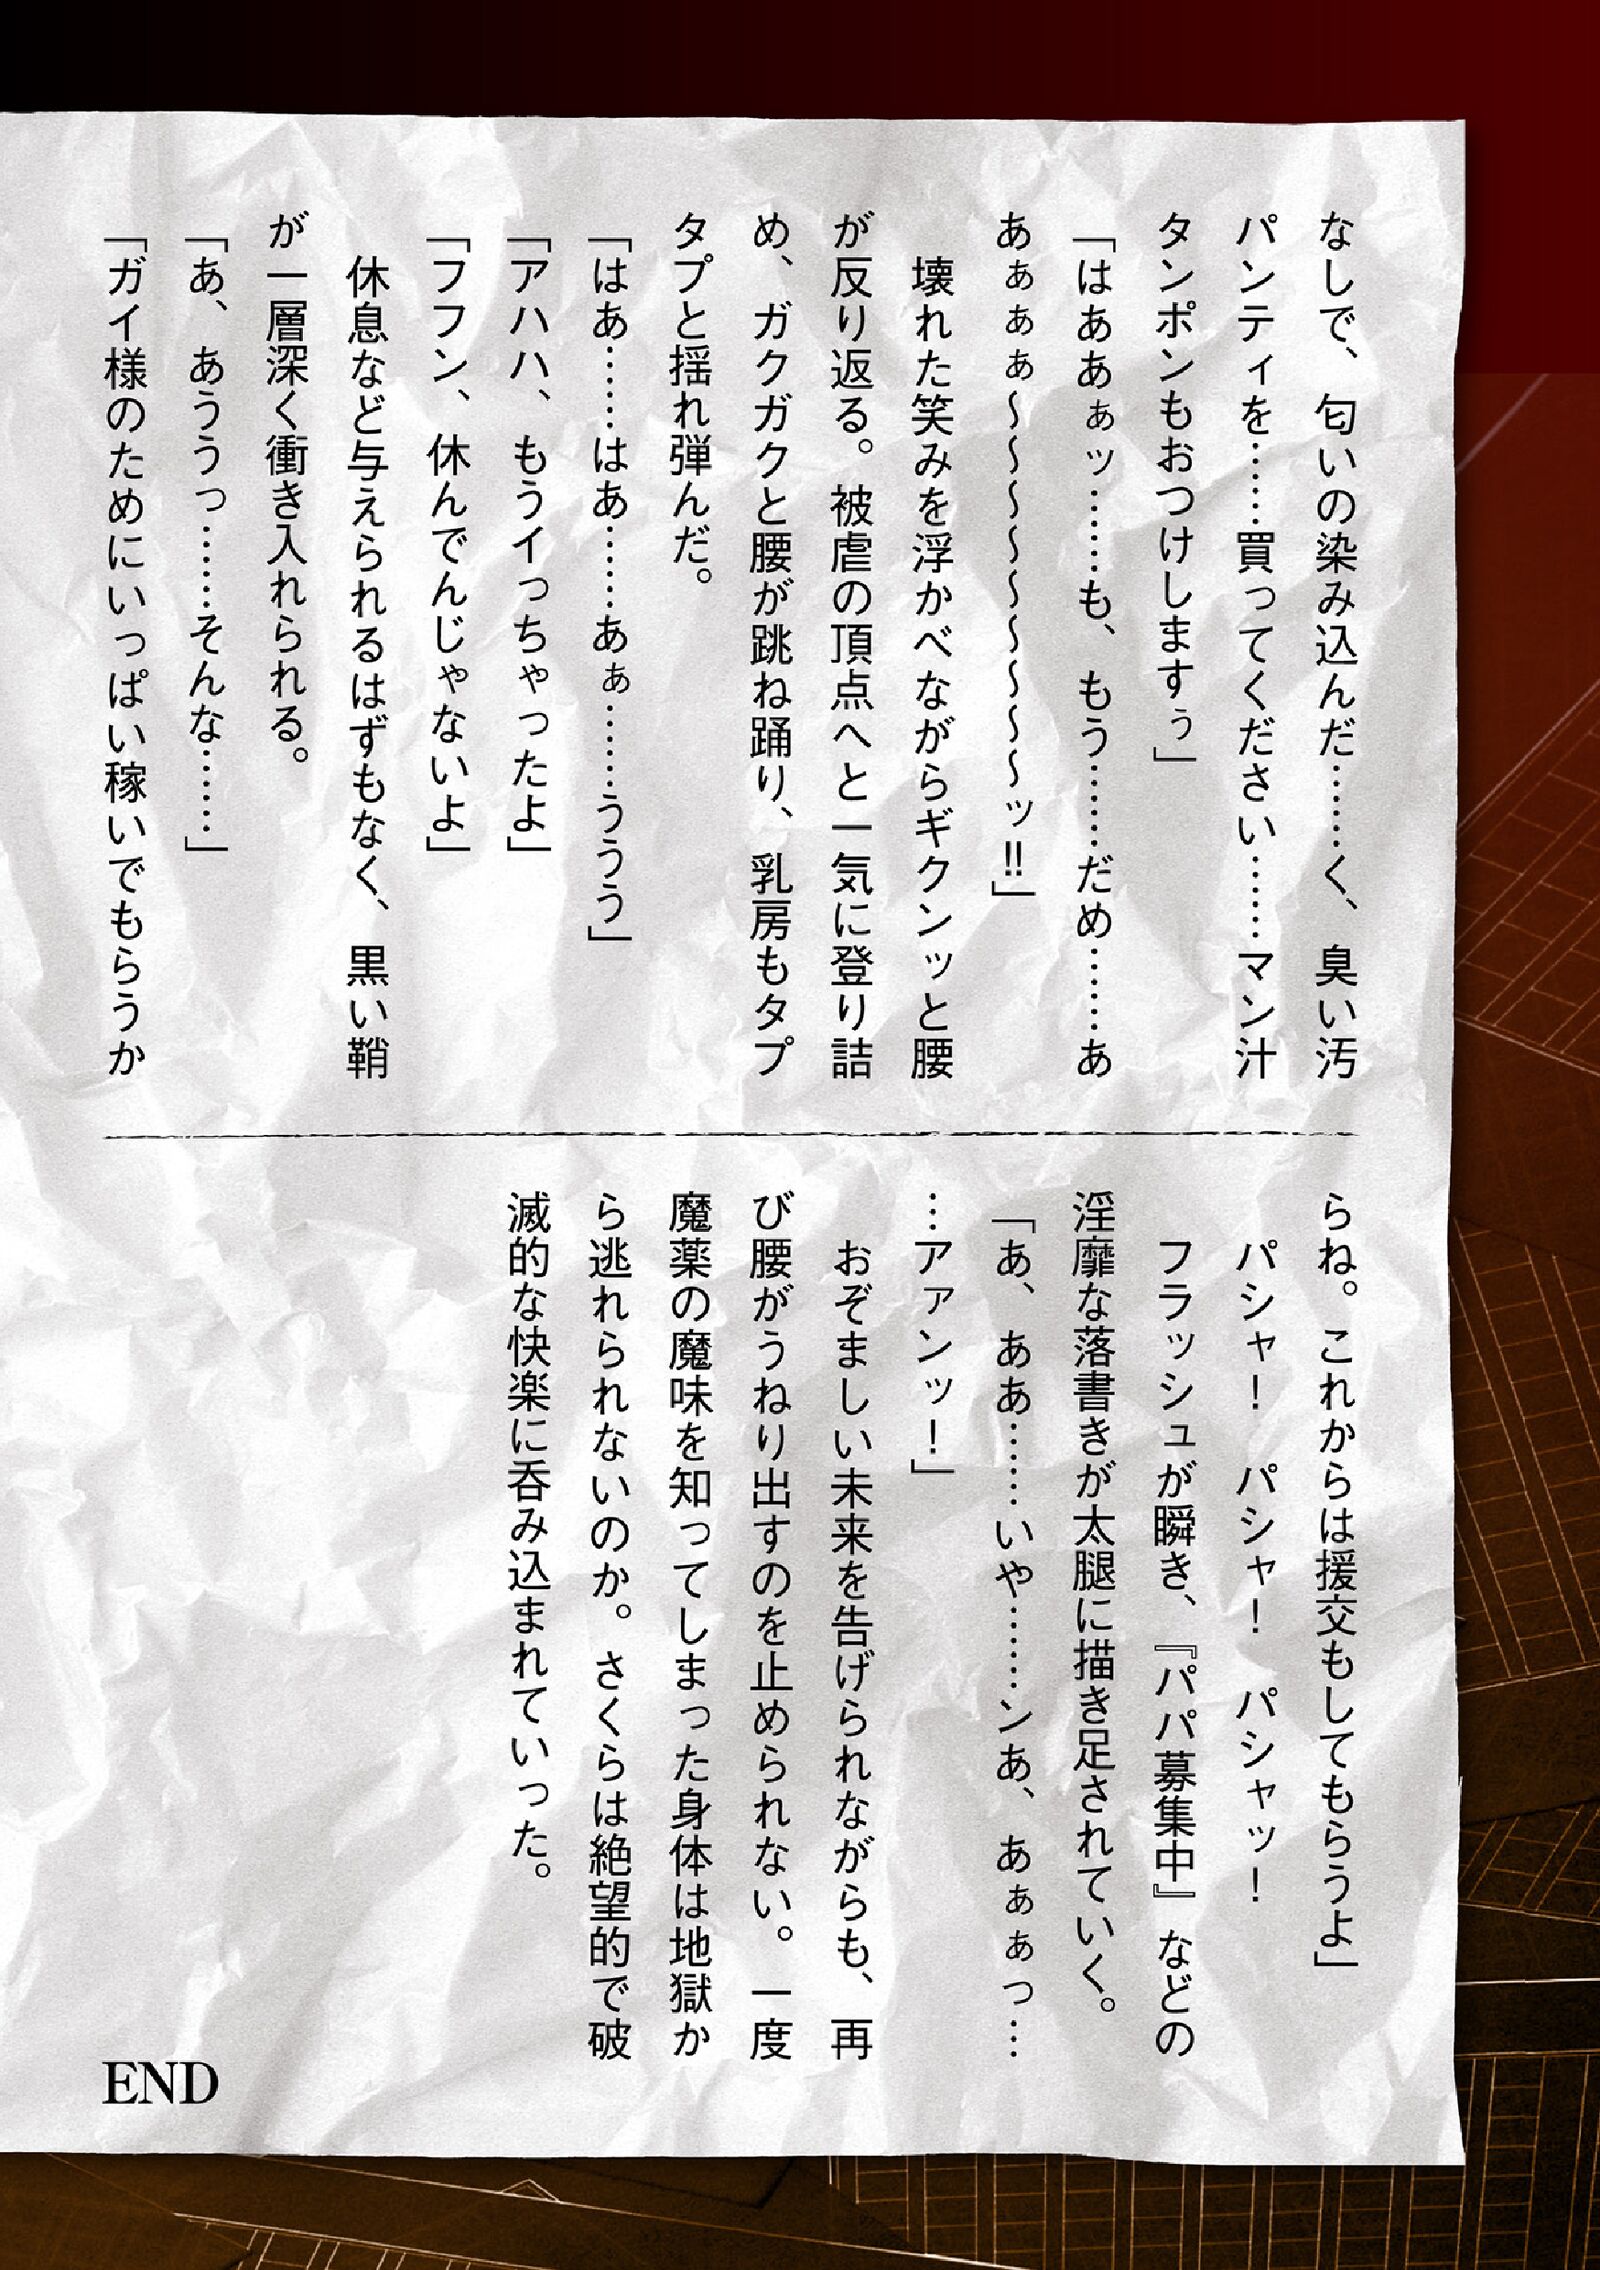 なしで、匂いの染み込んだ……く、臭い汚
パンティを……買ってください……マン汁
タンポンもおつけしますぅ」
「はああぁッ……も、もう……だめ……あ
あぁぁぁ～～～～～～～～～ッ!!」
　壊れた笑みを浮かべながらギクンッと腰
が反り返る。被虐の頂点へと一気に登り詰
め、ガクガクと腰が跳ね踊り、乳房もタプ
タプと揺れ弾んだ。
「はあ……はあ……あぁ……ううう」
「アハハ、もうイっちゃったよ」
「フフン、休んでんじゃないよ」
　休息など与えられるはずもなく、黒い鞘
が一層深く衝き入れられる。
「あ、あううっ……そんな……」
「ガイ様のためにいっぱい稼いでもらうか
らね。これからは援交もしてもらうよ」
　パシャ！　パシャ！　パシャッ！
　フラッシュが瞬き、『パパ募集中』などの
淫靡な落書きが太腿に描き足されていく。
「あ、ああ……いや……ンあ、あぁぁっ…
…アァンッ！」
　おぞましい未来を告げられながらも、再
び腰がうねり出すのを止められない。一度
魔薬の魔味を知ってしまった身体は地獄か
ら逃れられないのか。さくらは絶望的で破
滅的な快楽に呑み込まれていった。
END